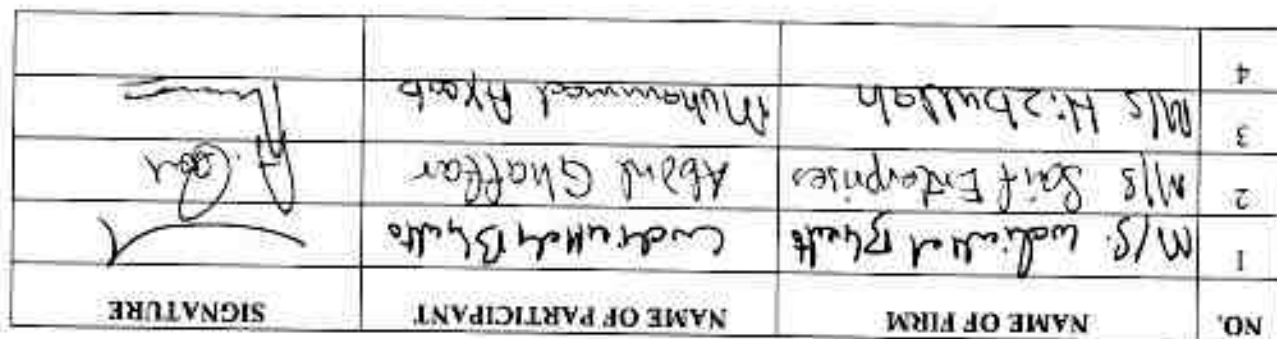 NO. NAME OF FIRM NAME OF PARTICIPANT SIGNATURE
1 M/S. Bhutto Bhutto
2 M/S Saif Enterprises Abdul Ghaffar
3 M/S Hizbullah Muhammad Ayoub
4